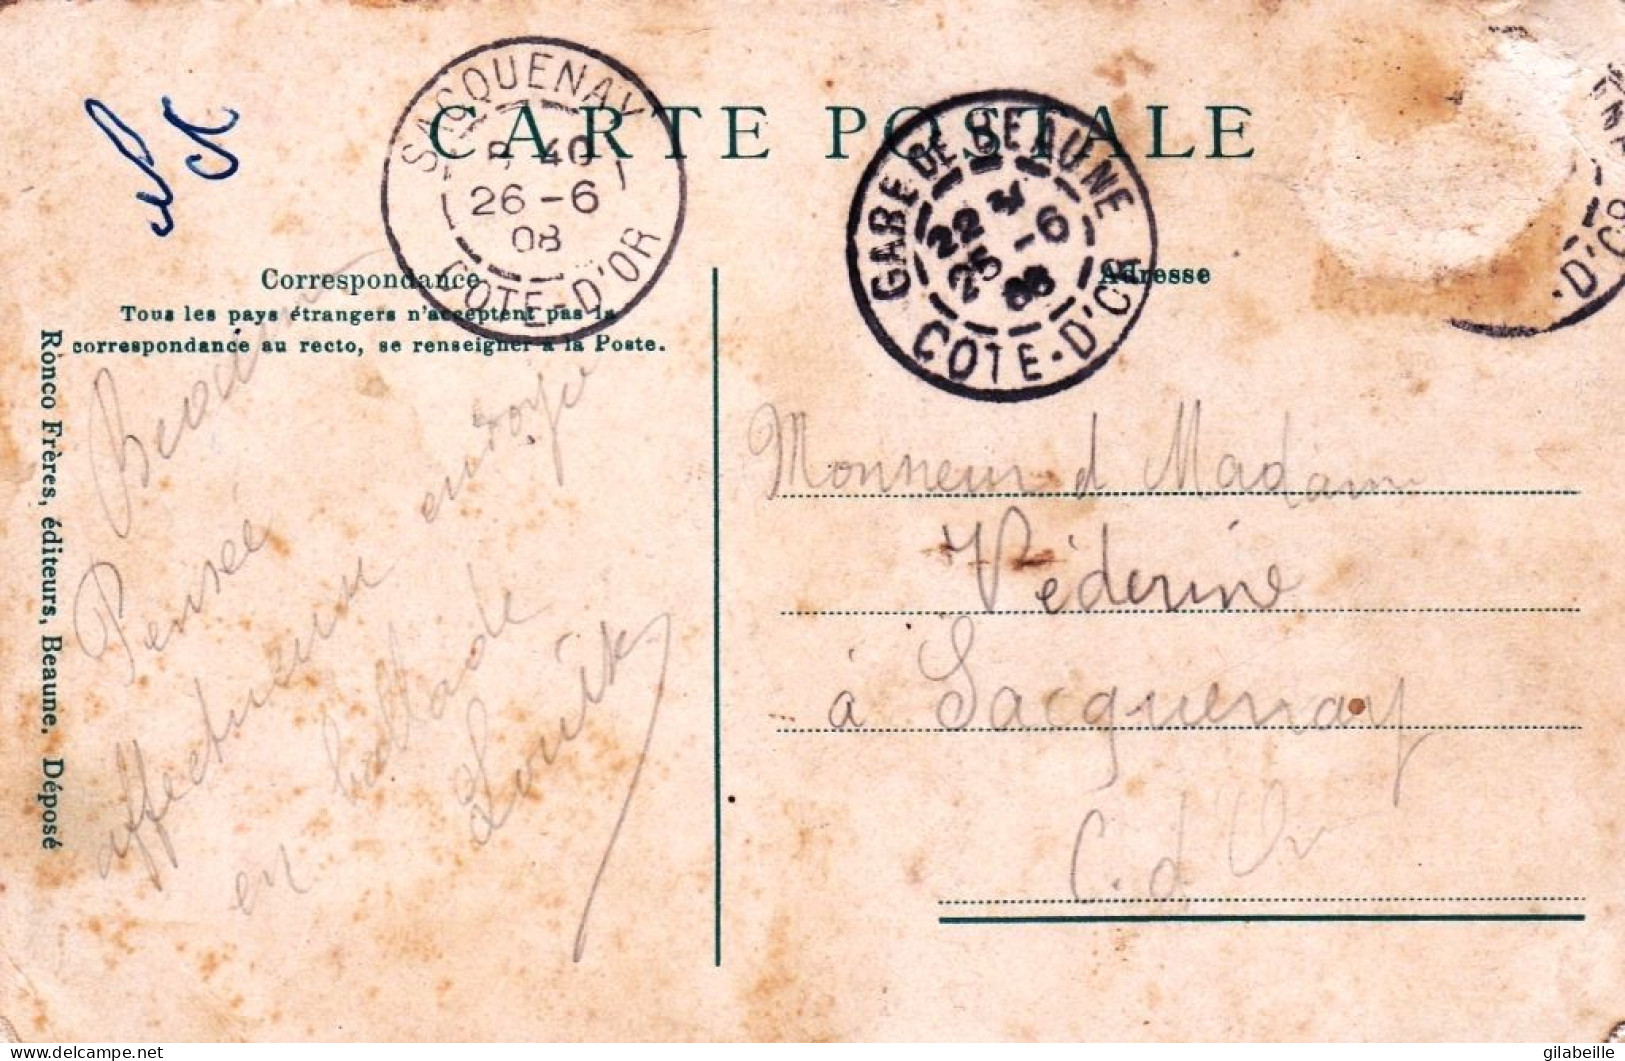 CARTE POSTALE
SACQUENAY
40
26-6
08
COTE-D'OR
GARE DE BEAUNE
22
25-6
08
COTE-D'OR
Correspondance
Adresse
Tous les pays étrangers n'acceptent pas la
correspondance au recto, se renseigner à la Poste.
Ronco Frères, éditeurs, Beaune. Déposé
Pensée
affectueuse envoyé
en ballade
Monsieur et Madame
Péderine
à Sacquenay
C. d'Or
-D'O
delcampe.net
gilabeille